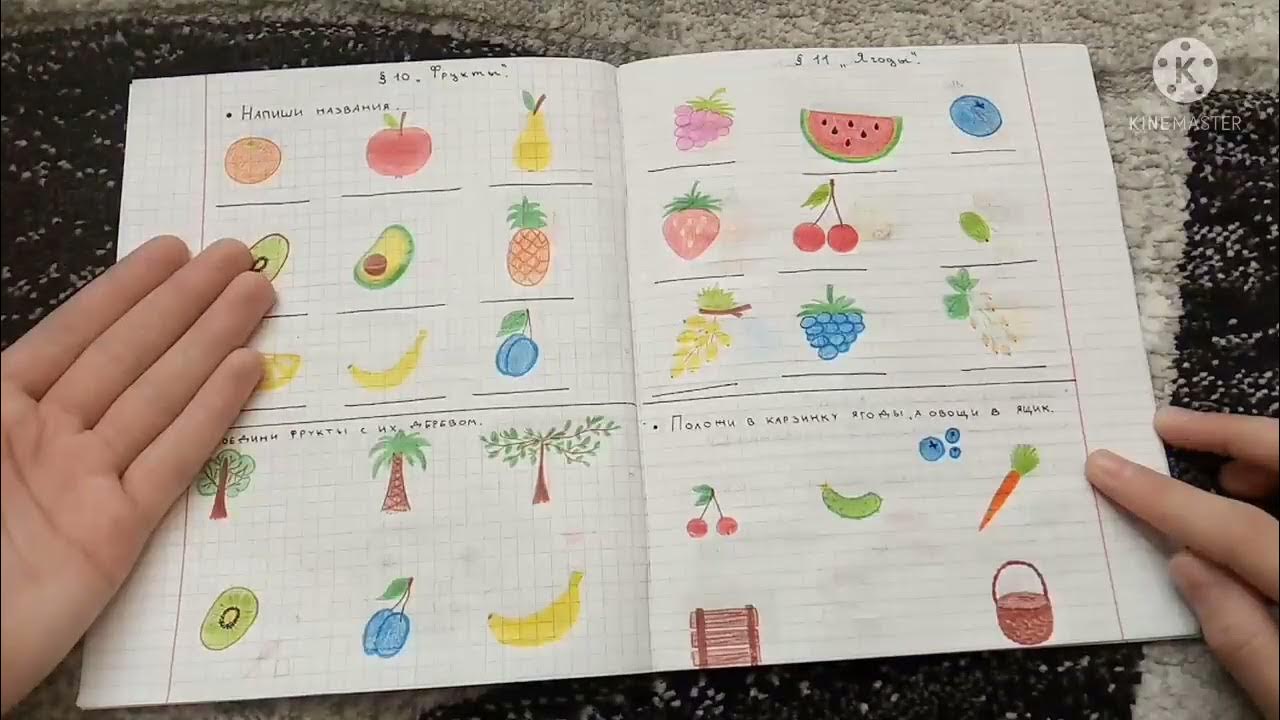 § 10 „Фрукты".
• Напиши названия.
оедини фрукты с их деревом.
§ 11 „Ягоды".
• Положи в карзинку ягоды, а овощи в ящик.
K
KINEMASTER